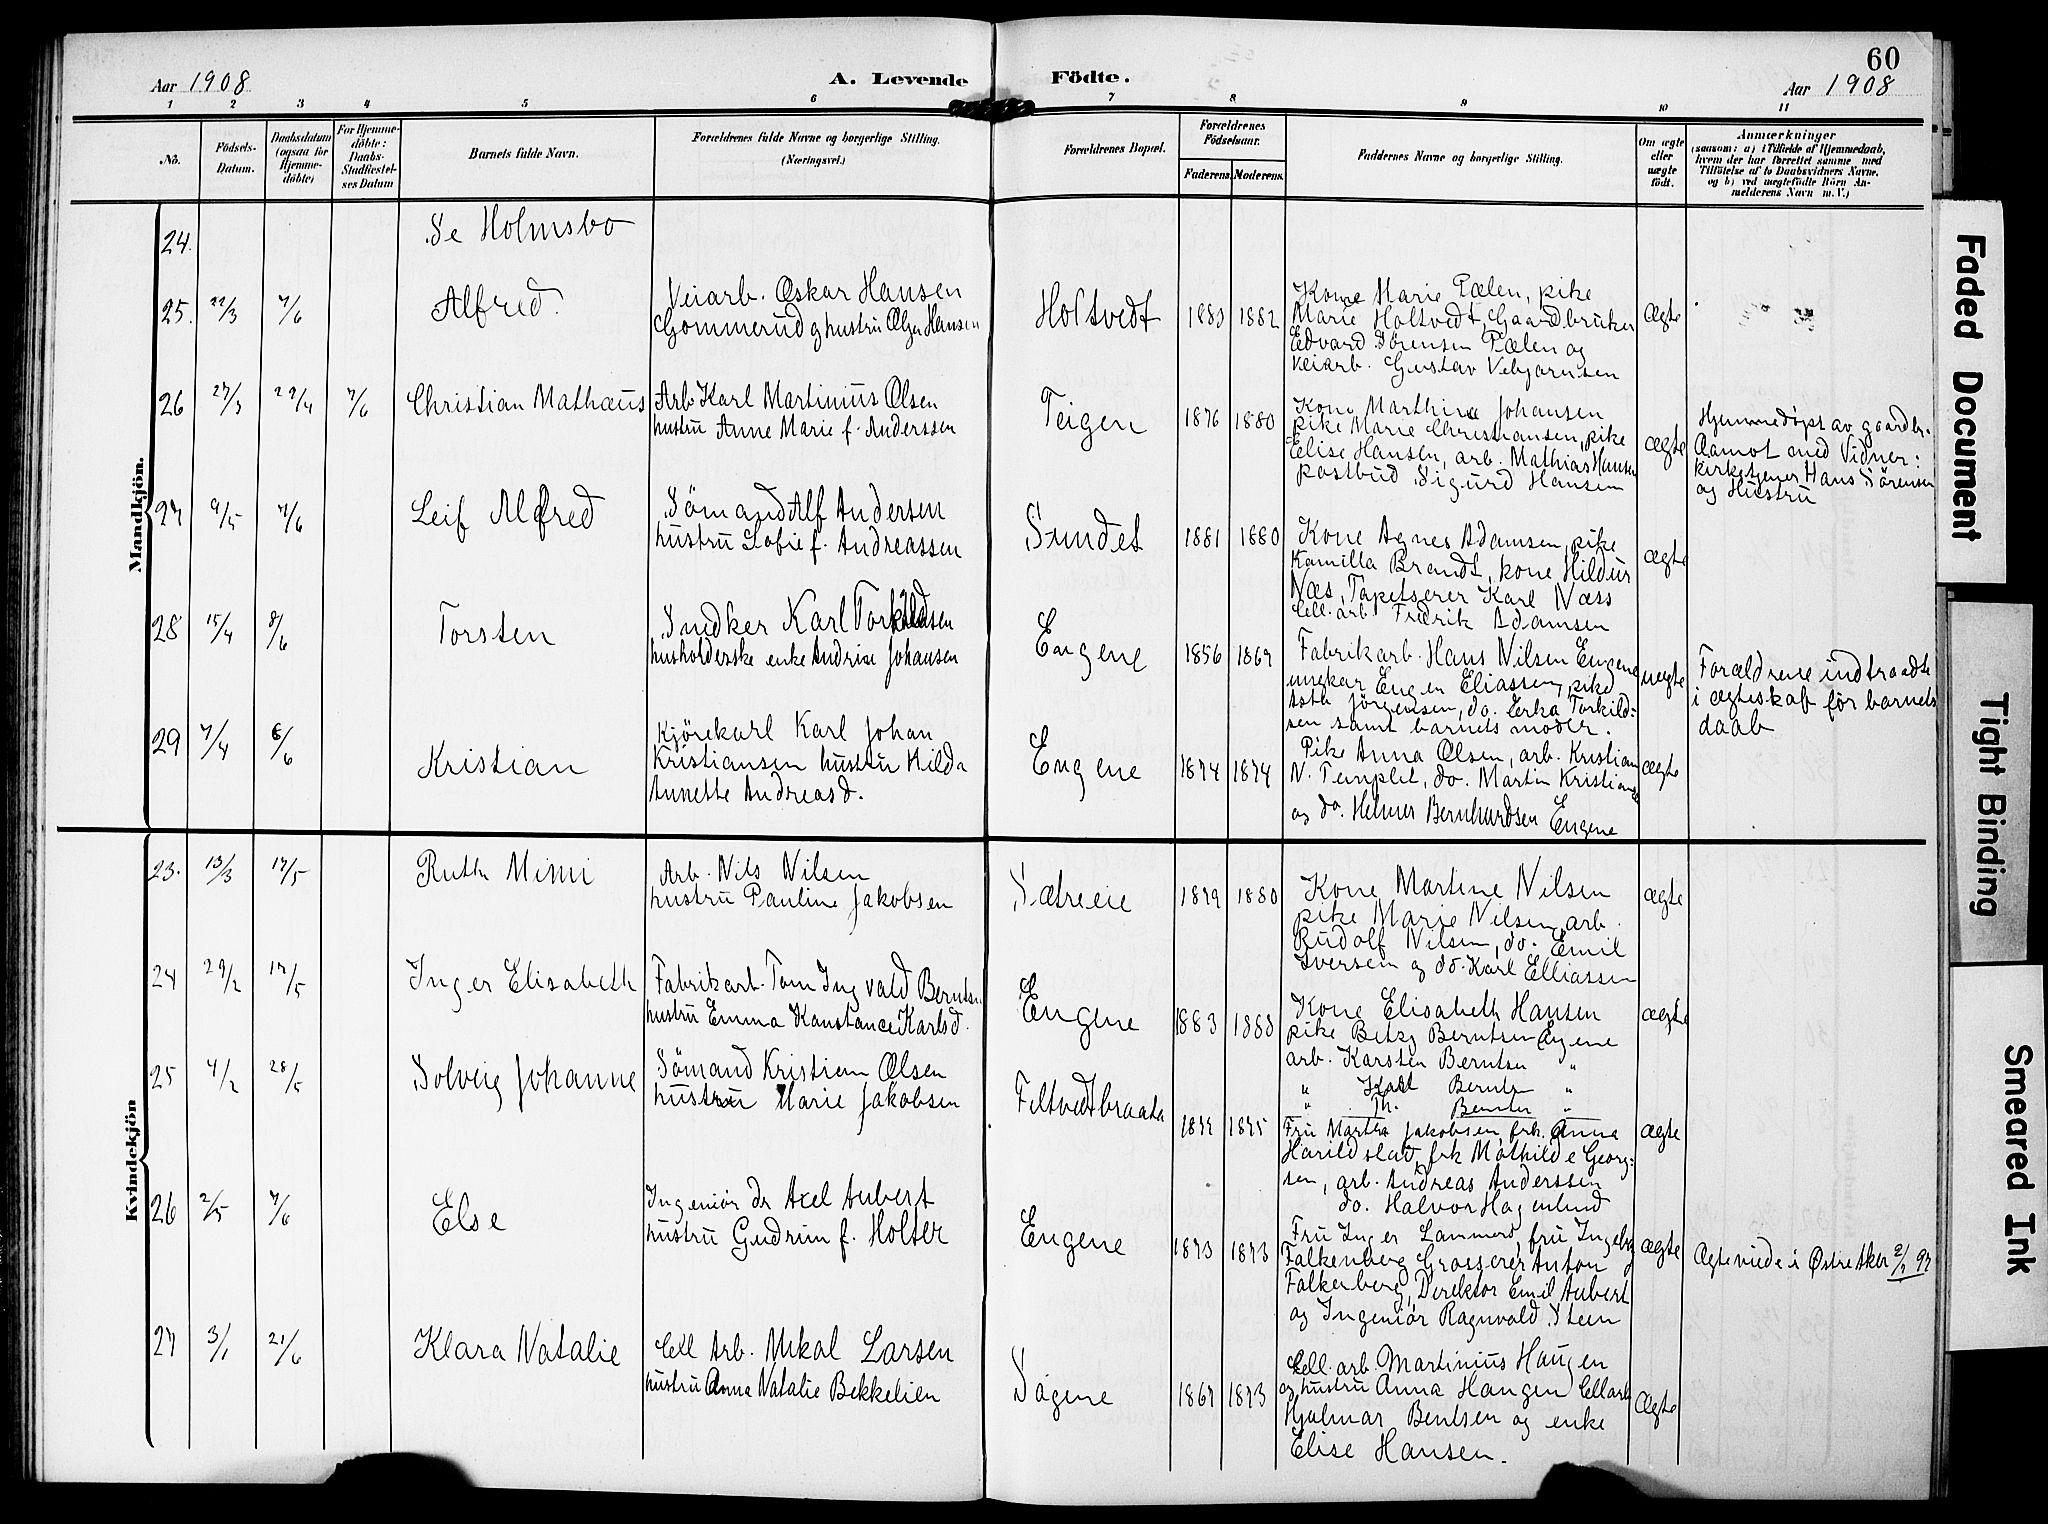 60
Aar 1908
A. Levende Födte.
Aar 1908
1 2 3 4 5 6 7 8 9 10 11
No.
Födsels-
Datum.
Daabsdatum
(ogsaa for
Hjemme-
döbte)
For Hjemme-
döbte:
Daabs-
Stadfæstel-
ses Datum
Barnets fulde Navn.
Forældrenes fulde Navne og borgerlige Stilling.
(Næringsvei.)
Forældrenes Bopæl.
Forældrenes
Födselsaar.
Faderens. Moderens.
Faddernes Navne og borgerlige Stilling.
Om ægte
eller
uægte
födt.
Anmærkninger
(saasom: a) i Tilfælde af Hjemmedaab,
hvem der har forrettet samme med
Tilföielse af to Daabsvidners Navne.
og b) ved uægtefödte Börn An-
melderens Navn m. V.)
Mandkjön.
24.
Se Holmsbo
25. 22/3 7/6
Alfred.
Veiarb. Oskar Hansen
Gommerud og hustru Olga Hansen
Holtvedt
1883 1882
Kone Marie Pælen, pike
Marie Holtvedt, Gaardbruker
Edvard Sørensen Pælen og
veiarb. Gustav Vebjørnsen
Ægte
26 27/3 29/4 7/6
Christian Mathæus
Arb. Karl Martinius Olsen
hustru Anne Marie f. Anderssen
Teigen
1876 1880
Kone Marthine Johansen
pike Marie Christiansen, pike
Elise Hansen, arb. Mathias Hansen
postbud Sigurd Hansen
ægte
Hjemmedøpt av gaardbr.
Aamot med Vidner:
kirketjener Hans Sörensen
og Hustru
27 9/5 7/6
Leif Alfred
Sömand Alf Andersen
hustru Sofie f. Andreassen
Sundet
1881 1880
Kone Agnes Adamsen, pike
Kamilla Brandt, kone Hildur
Næs, Tapetserer Karl Næss
Cell. arb. Fredrik Adamsen
ægte
28 15/4 8/6
Torsten
Snedker Karl Torkildsen
husholderske enke Andrine Johansen
Engene
1856 1867
Fabrikarb. Hans Nilsen Engene
ungkar Eugen Eliassen, pike
Asta Jörgensen, do. Erka Torkild=
sen samt barnets moder.
uægte
Forældrene indtraadte
i ægteskab för barnets
daab
29 7/4 6/6
Kristian
Kjörekarl Karl Johan
Kristiansen hustru Hilda
Annette Andreasd.
Engene
1874 1874
Pike Anna Olsen, arb. Kristian
N. Templet, do. Martin Kristians
og do. Helmer Bernhardsen Engene
ægte
Kvindekjön
23. 13/3 17/5
Ruth Mimi
Arb. Nils Nilsen
hustru Pauline Jakobsen
Sætreeie
1879 1880
Kone Martine Nilsen
pike Marie Nilsen, arb.
Rudolf Nilsen, do. Emil
Iversen og do. Karl Elliassen
ægte
24 29/2 17/5
Inger Elisabeth
Fabrikarb. Tom Ingvald Berntsen
hustru Emma Konstance Karlsd.
Engene
1883 1888
Kone Elisabeth Hansen
pike Betsy Berntsen Engene
arb. Karsten Berntsen "
" Karl Berntsen "
" Th. Berntsen "
ægte
25 4/2 28/5
Solveig Johanne
Sömand Kristian Olsen
hustru Marie Jakobsen
Filtvedtbraata
1877 1875
Fru Martha Jakobsen, frk. Anna
Harildstad, frk Mathilde Georg=
sen, arb. Andreas Anderssen
do. Halvor Hagenlund
ægte
26 2/5 7/6
Else
Ingeniör dr Axel Aubert
hustru Gudrun f. Holter
Engene
1873 1873
Fru Inger Lammers, fru Ingeborg
Falkenberg Grosserer Anton
Falkenberg, Direktör Emil Aubert
og Ingeniør Ragnvald Steen
ægte
Ægteviede i Østre Aker 2/7 97
27 3/1 21/6
Klara Natalie
Cell Arb. Mikal Larsen
hustru Anna Natalie Bekkelien
Sagene
1867 1873
Cell. arb. Martinius Haugen
og hustru Anna Haugen Cellarb
Hjalmar Bentsen og enke
Elise Hansen.
Ægte
Faded Document
Tight Binding
Smeared Ink